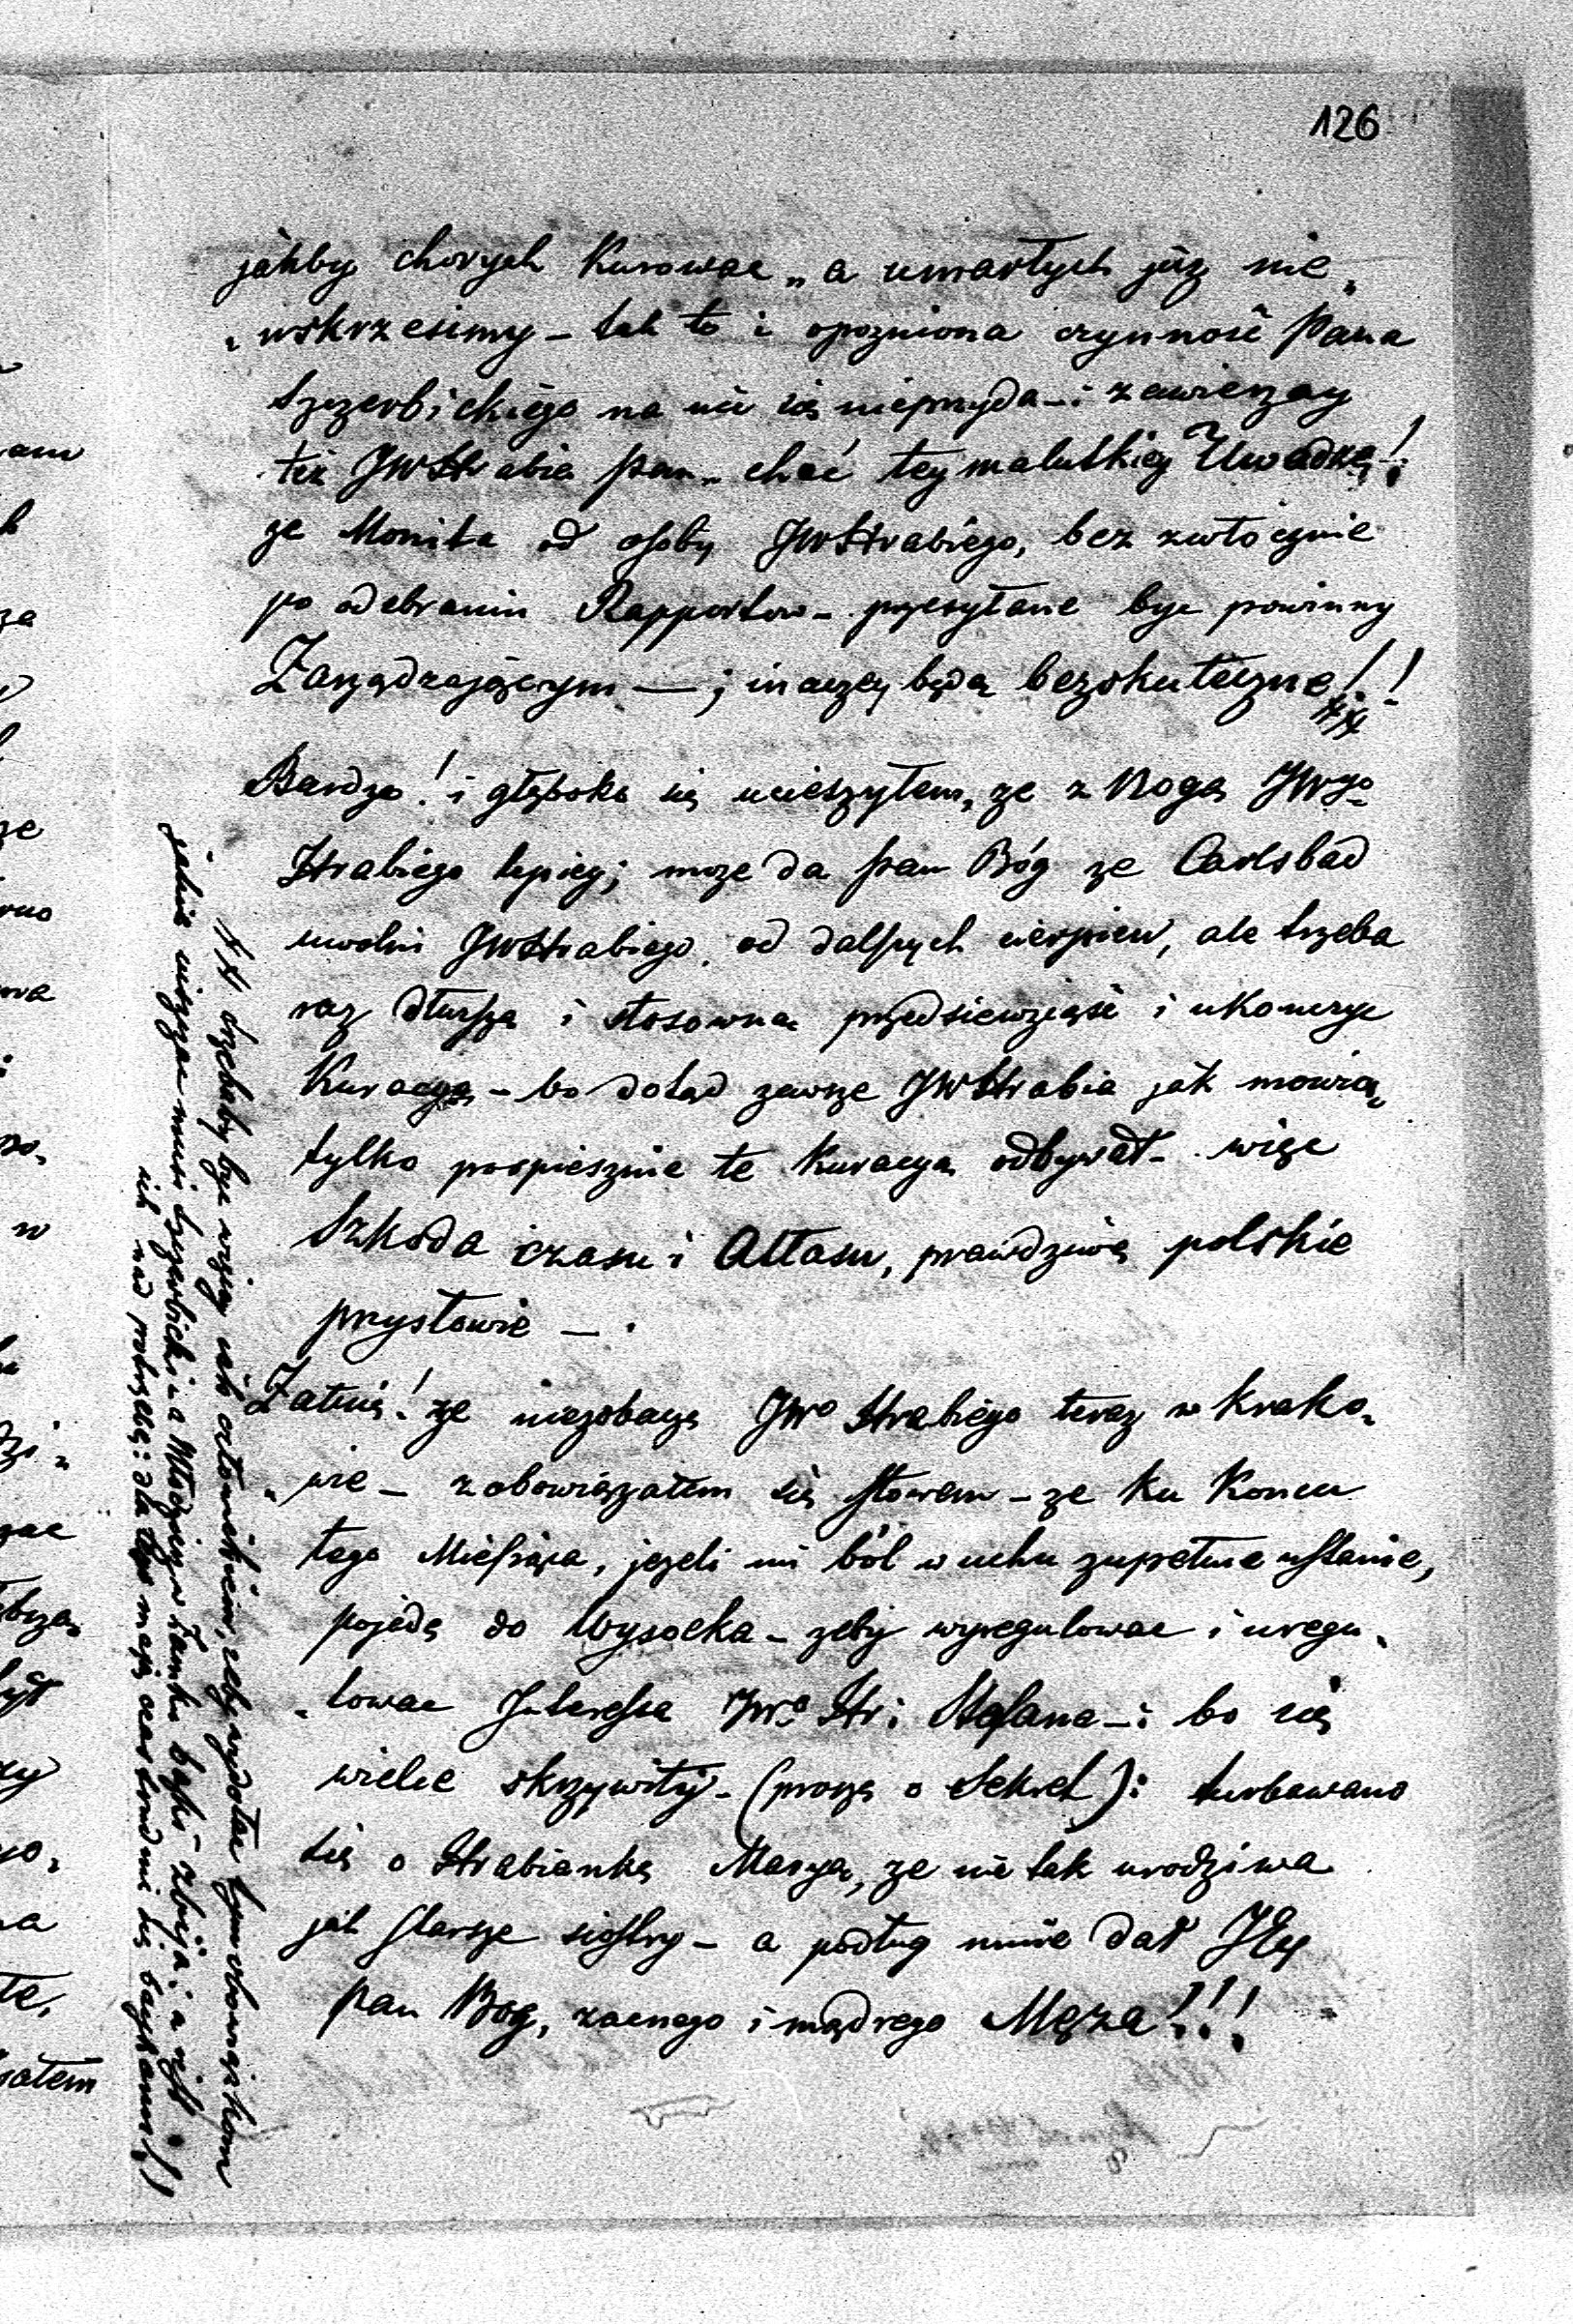 126
jakby chorych Kurowac „ a umarłych juz nie„
„wskrzesimy – tak to i opozniona czynność Pana
Szczerbickiego na nic się nieprzyda –: zawierzay
też JWHrabia Pan „ choć tey malutkiey Uwadze!:
ze Monita od osoby JWHrabiego, bez zwłocznie
po odebraniu Rapportow – przesyłane byc powinny
Zarządzającym — ; inaczey będą bezskuteczne!!
Bardzo! i głęboko się ucieszyłem, ze z Nogą JWgo
Hrabiego lepiey; moze da Pan Bóg ze Carlsbad
uwolni JWHrabiego od dalszych cierpien, ale trzeba
raz dłuszą i stosowną przedsiewziąść i ukonczyc
Kuracyą – bo dotąd zawsze JWHrabia jak mowią„
tylko pospiesznie te Kuracyą odbywał – więc
Szkoda czasu i Atłasu, prawdziwe polskie
przysłowie — .
Załuię! ze niezobaczę JWo Hrabiego teraz w Krako„
„wie – zobowiązałem się słowem – ze ku Koncu
tego Miesiąca, jezeli mi ból w uchu zupełnie ustanie,
pojadę do Wysocka – zeby wyregulowac i uregu„
„lowac Interessa JWo Hr: Stefana –: bo się
wielce skrzywiły – (proszę o Sekret): turbowano
się o Hrabiankę Maryą, ze nie tak urodziwa
jak starsze siostry – a podług mnie dał Jey
Pan Bog, zacnego i mądrego Męza!!!
## trzebaby byc wszey ich członkiem, zeby wydołac tym obowiązkom
jakie niszczac musi Szczerbicki – a Młodzież w Zamku bąki zbija: a jest
ich nad potrzebę: dla tego mają czas trudnic się bazgraniem!)